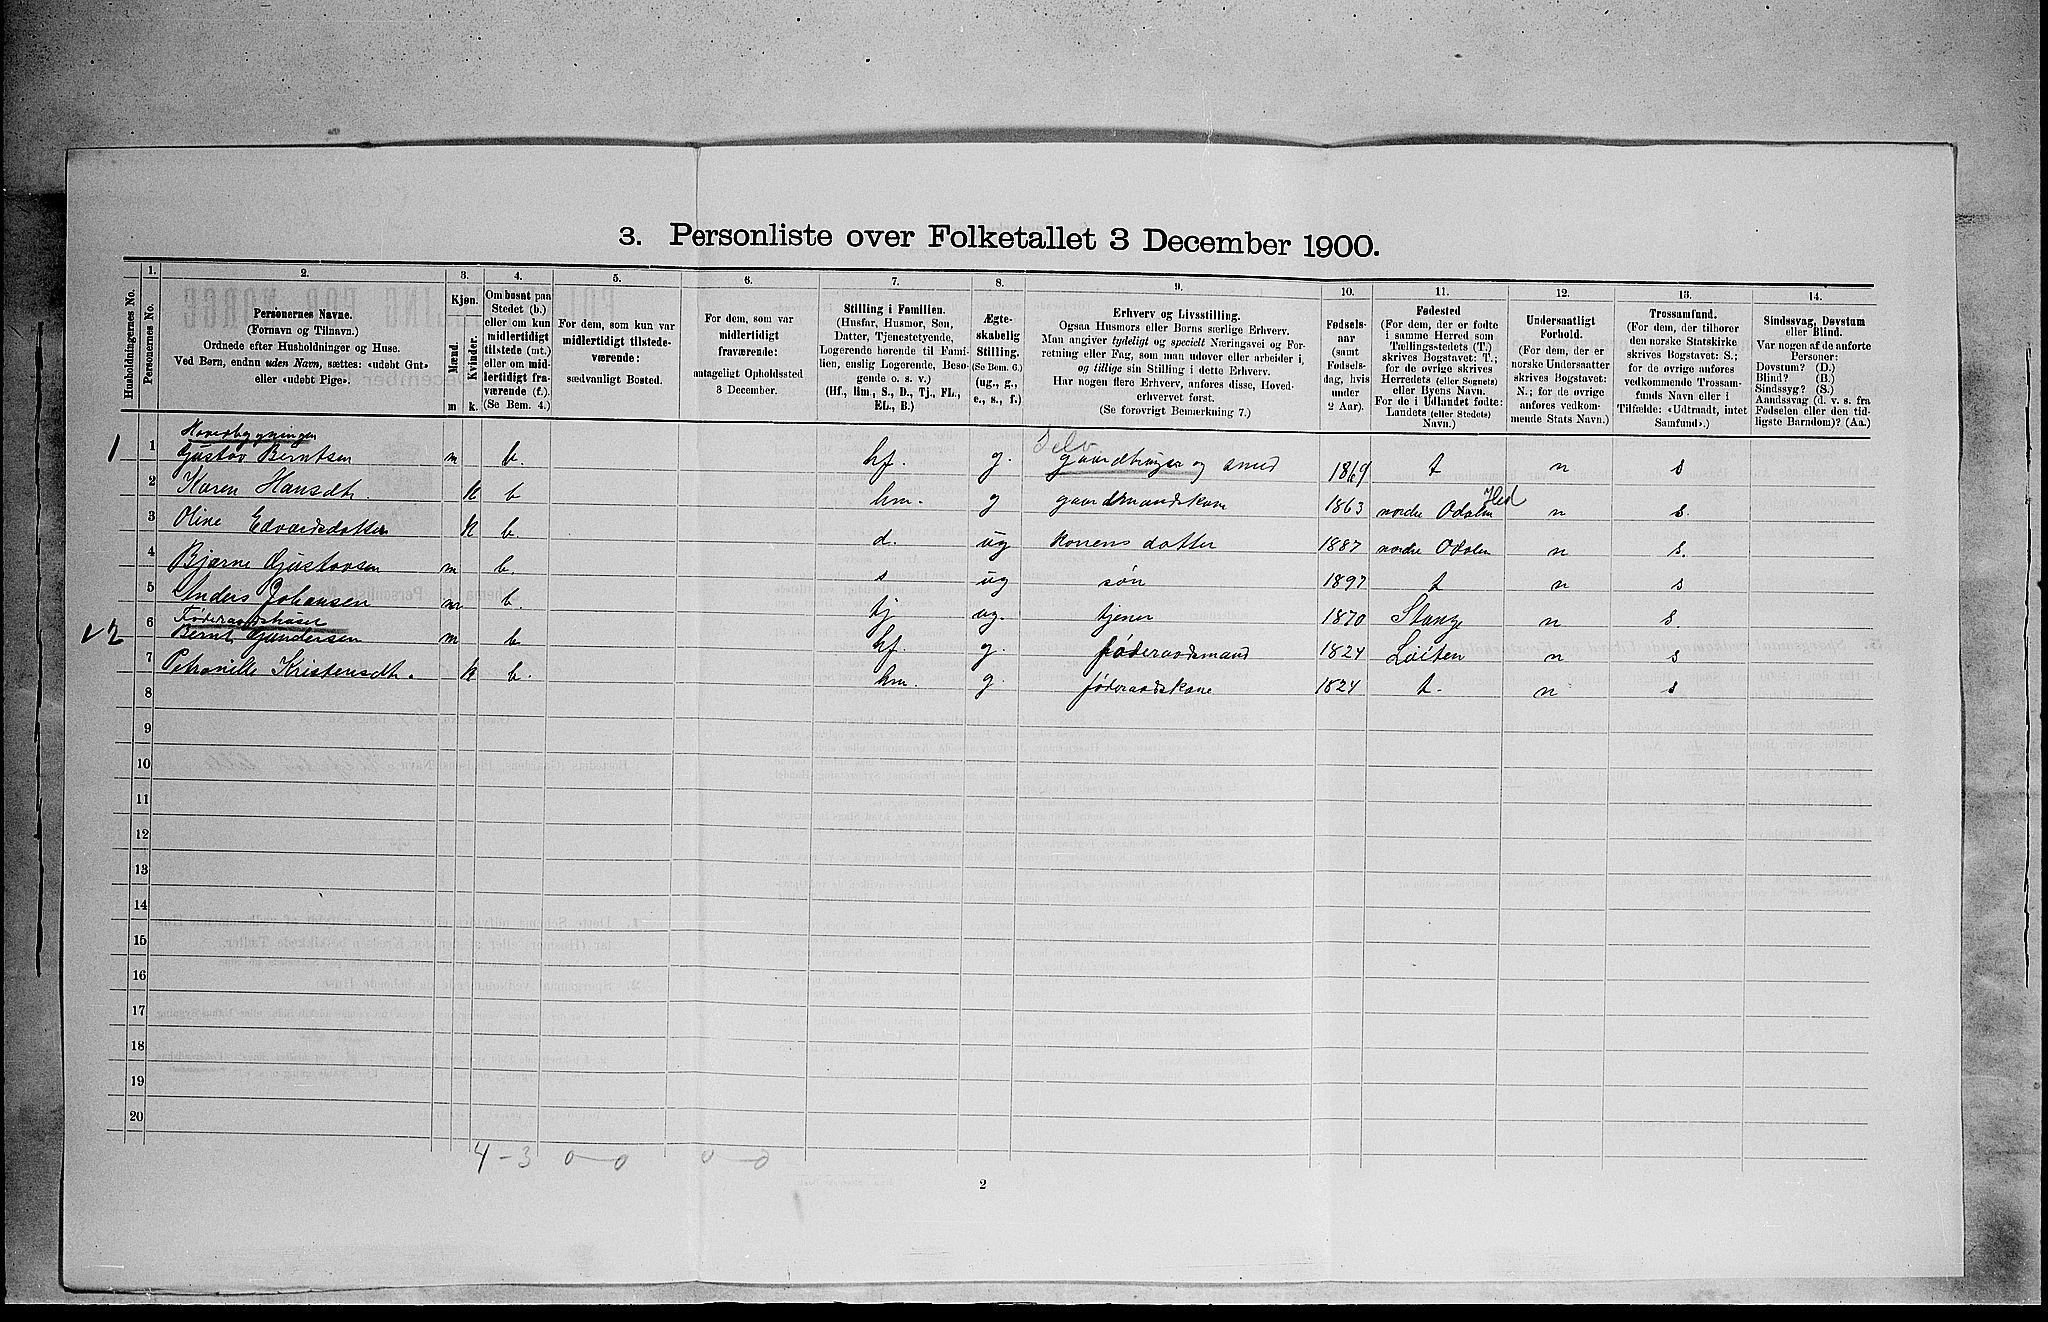 3. Personliste over Folketallet 3 December 1900.
1. 2. 3. 4. 5. 6. 7. 8. 9. 10. 11. 12. 13. 14.
Husholdningernes No.
Personernes No.
Personernes Navne.
(Fornavn og Tilnavn.)
Ordnede efter Husholdninger og Huse.
Ved Børn, endnu uden Navn, sættes: «udøbt Gut»
eller «udøbt Pige».
Kjøn.
Mænd.
Kvinder.
m k.
Om bosat paa
Stedet (b.)
eller om kun
midlertidigt
tilstede (mt.)
eller om mid-
lertidigt fra-
værende (f.).
(Se Bem. 4.)
For dem, som kun var
midlertidigt tilstede-
værende:
sædvanligt Bosted.
For dem, som var
midlertidigt
fraværende:
antageligt Opholdssted
3 December.
Stilling i Familien.
(Husfar, Husmor, Søn,
Datter, Tjenestetyende,
Logerende hørende til Fami-
lien, enslig Logerende, Beso-
gende o. s. v.)
(Hf., Hm., S., D., Tj., FL.,
EL., B.)
Ægte-
skabelig
Stilling.
(Se Bem. 6.)
(ug., g.,
e., s., f.)
Erhverv og Livsstilling.
Ogsaa Husmors eller Børns særlige Erhverv.
Man angiver tydeligt og specielt Næringsvei og For-
retning eller Fag, som man udøver eller arbeider i,
og tillige sin Stilling i dette Erhverv.
Har nogen flere Erhverv, anføres disse, Hoved-
erhvervet først.
(Se forøvrigt Bemærkning 7.)
Fødsels-
aar
(samt
Fødsels-
dag, hvis
under
2 Aar).
Fødested
(For dem, der er fødte
i samme Herred som
Tællings-stedets (T.)
skrives Bogstavet: T.;
for de øvrige skrives
Herredets (eller Sognets)
eller Byens Navn.
For de i Udlandet fødte:
Landets (eller Stedets)
Navn.)
Undersaatligt
Forhold.
(For dem, der er
norske Undersaatter
skrives Bogstavet:
N.; for de øvrige
anføres vedkom-
mende Stats Navn.)
Trossamfund.
(For dem, der tilhører
den norske Statskirke
skrives Bogstavet: S.;
for de øvrige anføres
vedkommende Trossam-
funds Navn eller i
Tilfælde: «Udtraadt, intet
Samfund».)
Sindssvag, Døvstum
eller Blind.
Var nogen af de anførte
Personer:
Døvstum? (D.)
Blind? (B.)
Sindssyg? (S.)
Aandssvag (d. v. s. fra
Fødselen eller den tid-
ligste Barndom)? (Aa.)
Hovedbygningen Selv
1 1 Gustav Berntsen m b. hf. g. gaardbruger og smed 1869 t n s
2 Karen Hansdtr. k b hm. g gaardmandskone 1863 nordre Odalen Hed n s.
3 Oline Edvardsdatter k b. d. ug konens datter 1887 nordre Odalen n s.
4 Bjarne Gustavsen m b. s ug søn 1897 t n s
5 Anders Johansen m b. tj ug. tjener 1870 Stange n s.
Føderaadshuset
2 6 Bernt Gundersen m b hf. g. føderaadsmand 1824 Løiten n s
7 Petronille Kristensdtr. k b. hm. g. føderaadskone 1824 t. n s
8
9
10
11
12
13
14
15
16
17
18
19
20
4-3 0-0 0-0
2